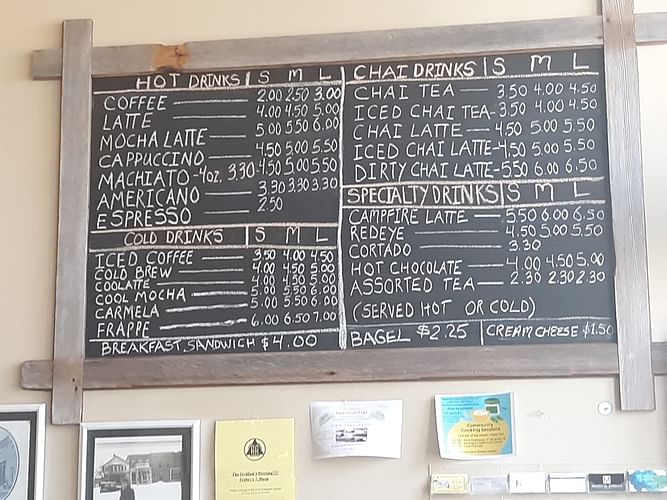 HOT DRINKS S M L
COFFEE 2.00 2.50 3.00
LATTE 4.00 4.50 5.00
MOCHA LATTE 5.00 5.50 6.00
CAPPUCCINO 4.50 5.00 5.50
MACHIATO - 4oz. 3.30 4.50 5.00 5.50
AMERICANO 3.30 3.30 3.30
ESPRESSO 2.50
COLD DRINKS S M L
ICED COFFEE 3.50 4.00 4.50
COLD BREW 4.00 4.50 5.00
COOLATTE 4.00 4.50 5.00
COOL MOCHA 5.00 5.50 6.00
CARMELA 5.00 5.50 6.00
FRAPPE 6.00 6.50 7.00
BREAKFAST SANDWICH $4.00
CHAI DRINKS S M L
CHAI TEA 3.50 4.00 4.50
ICED CHAI TEA 3.50 4.00 4.50
CHAI LATTE 4.50 5.00 5.50
ICED CHAI LATTE 4.50 5.00 5.50
DIRTY CHAI LATTE 5.50 6.00 6.50
SPECIALTY DRINKS S M L
CAMPFIRE LATTE 5.50 6.00 6.50
REDEYE 4.50 5.00 5.50
CORTADO 3.30
HOT CHOCOLATE 4.00 4.50 5.00
ASSORTED TEA 2.30 2.30 2.30
(SERVED HOT OR COLD)
BAGEL $2.25 CREAM CHEESE $1.50
Community
Cooking Sessions